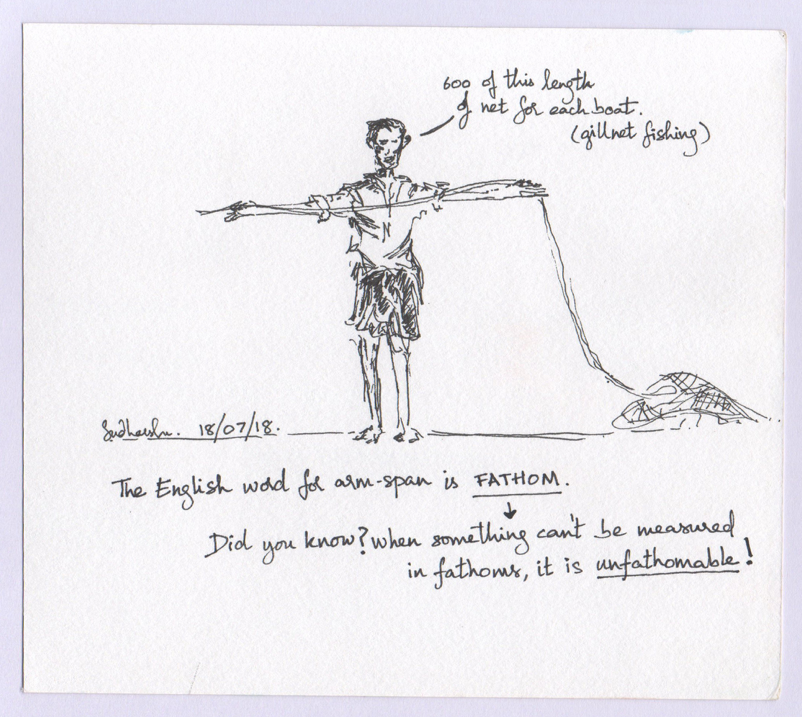 600 of this length
of net for each boat.
(gillnet fishing)
18/07/18.
The English word for arm-span is FATHOM.
Did you know? when something can't be measured
in fathoms, it is unfathomable!